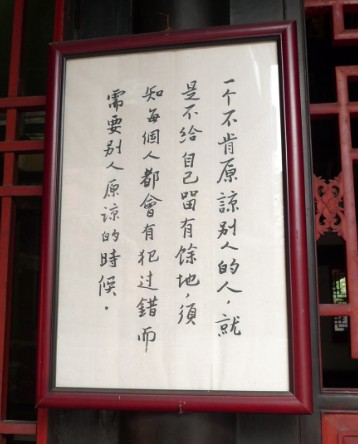 一个不肯原諒别人的人，就
是不给自己留有餘地，須
知每個人都會有犯过錯而
需要别人原谅的時候．